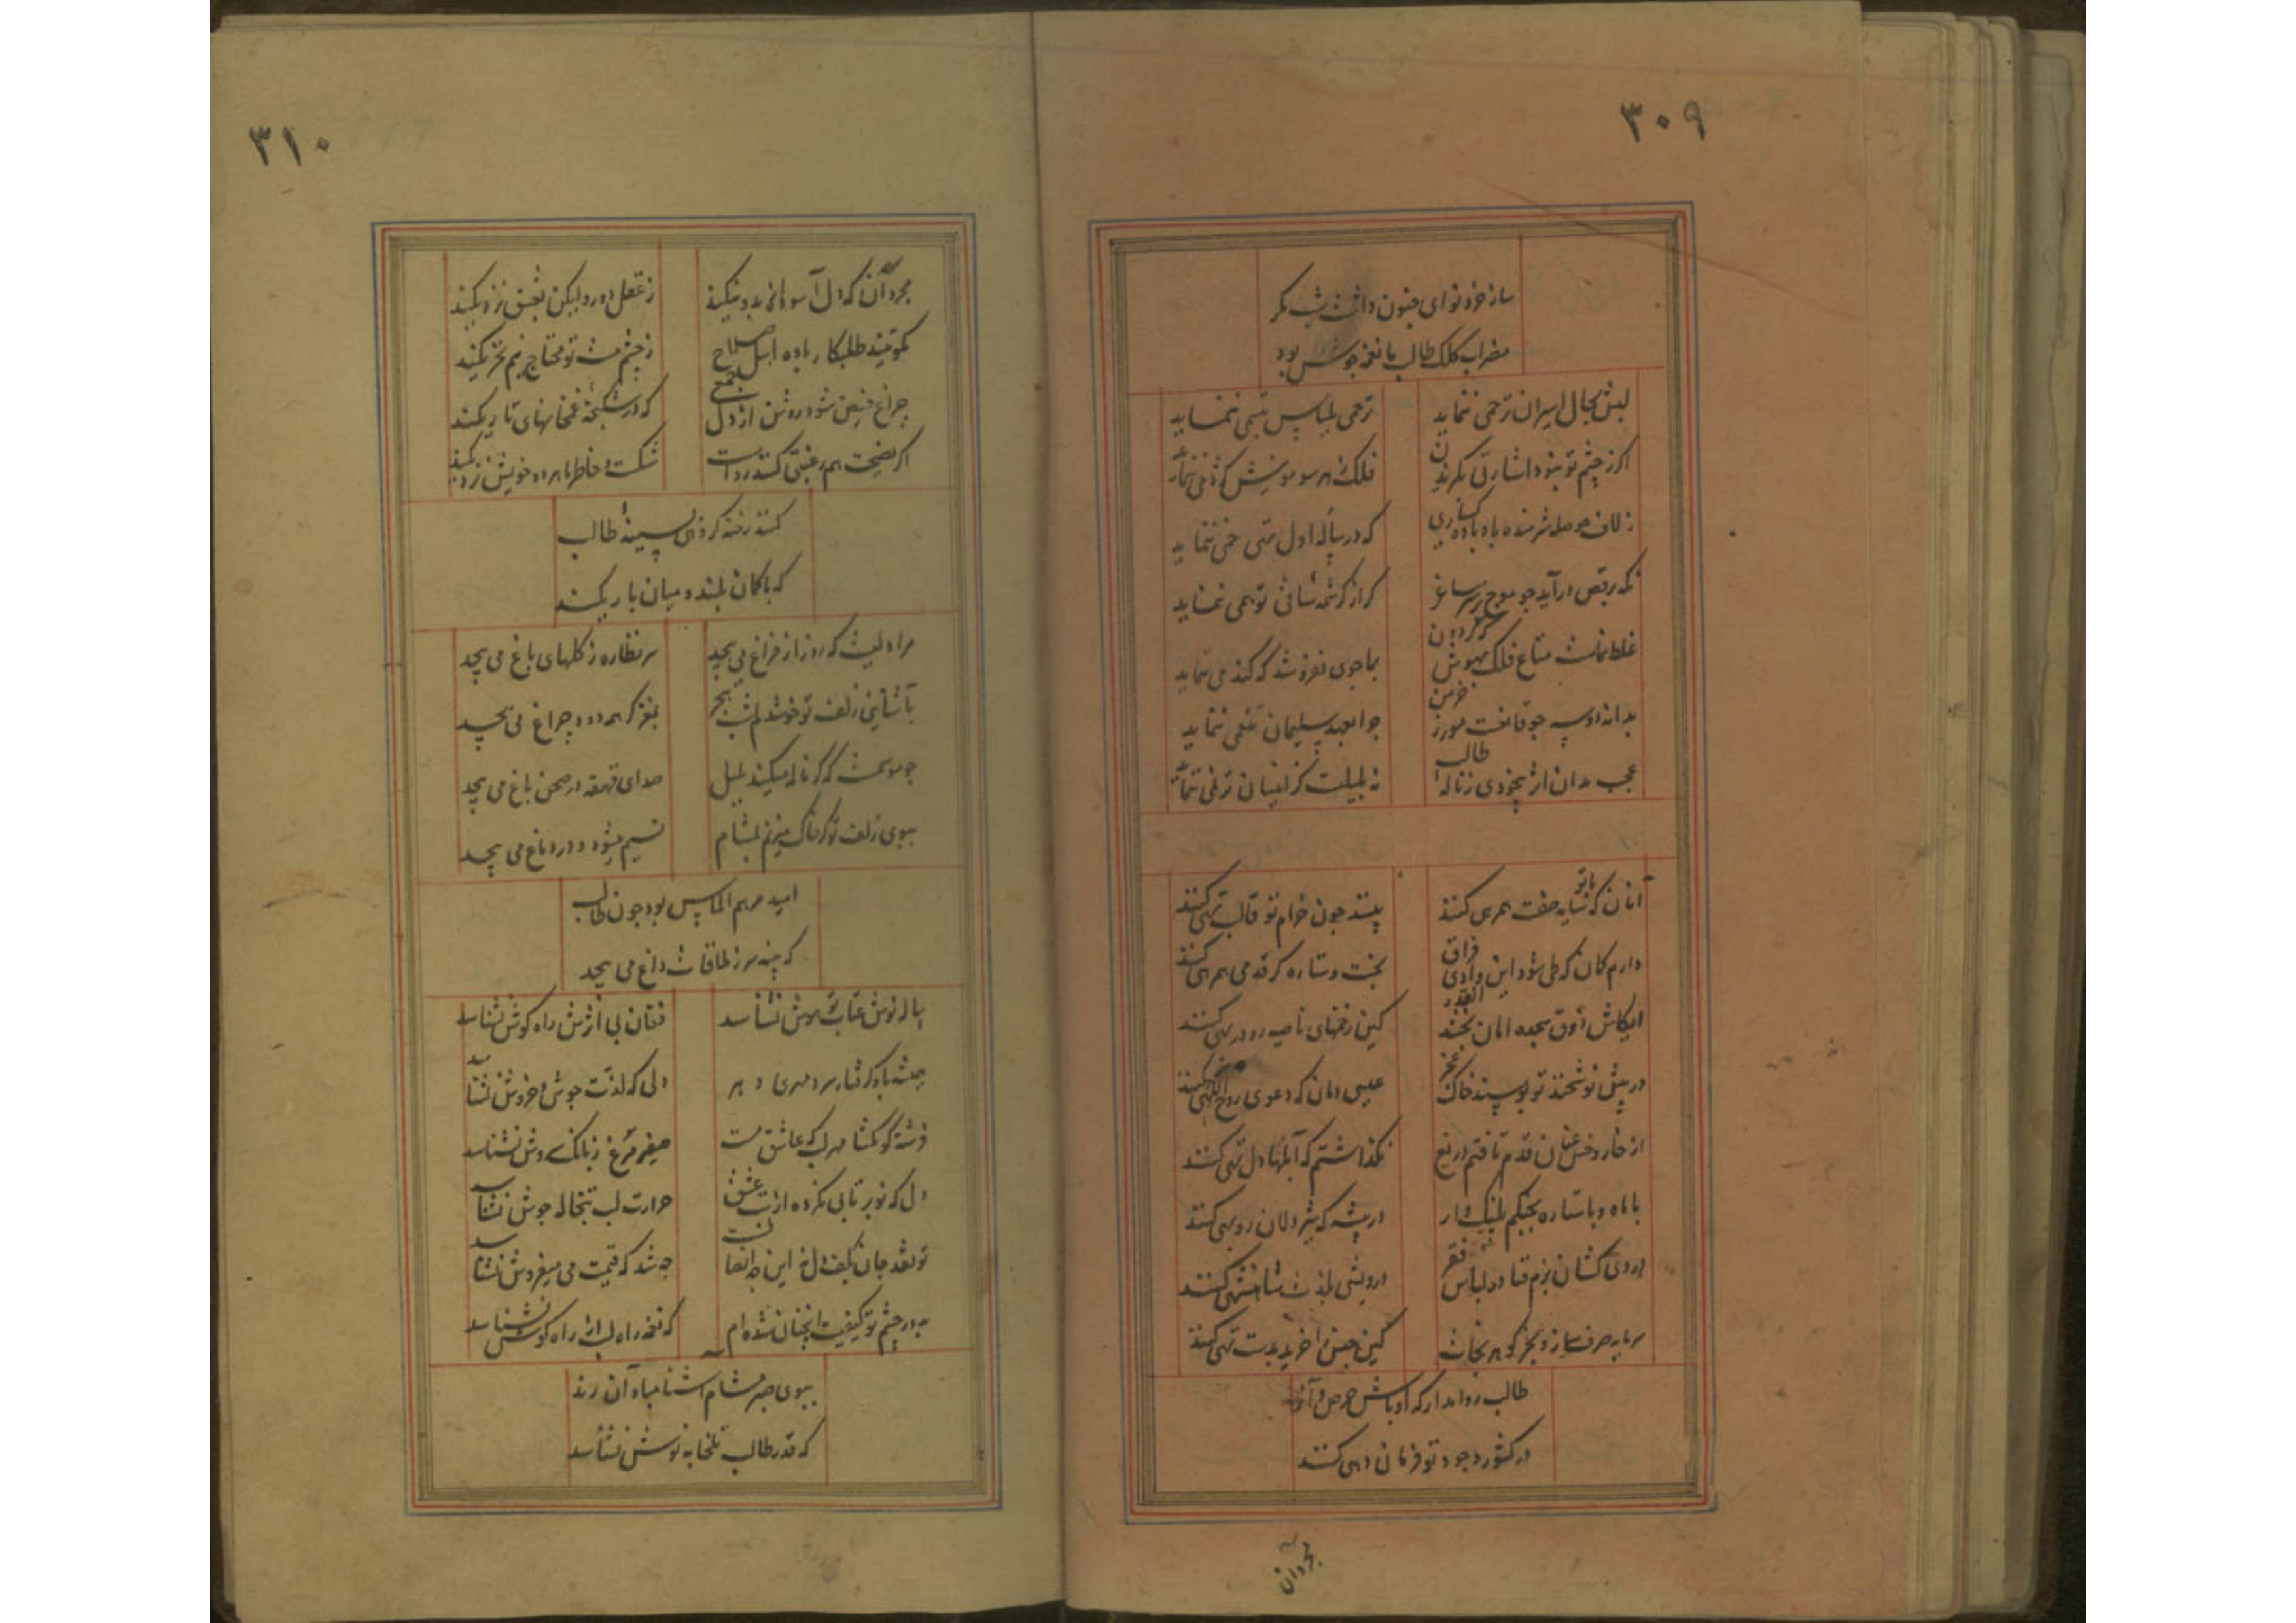 ۳۰۹
ساز خرد نوای جنون داشت شب مکر
مضراب کلک طالب با نغمه جوس بود
لبش بحال اسیران ترحمی ننماید
ترحمی بلباس تبسمی ننماید
اکر ز چشم تو نبود اشارتی نکرند
فلک بهر سر مویش کژدمی ننماید
ز لاف حوصله شرمنده باد باده کساری
که در پیاله اول تهی خمی ننماید
نکه برقص در آید جو موج بر سر ساغر
کر از کرشمه ساقی توهمی ننماید
غلط نماست متاع فلک بهوش که کردون
بما جوی نفروشد که کندمی ننماید
بدانه دو سه جو قانعست مور ز خرمن
جرا بعهد سلیمان تنعمی ننماید
عجب مدان اثر بیخودی ز ناله طالب
نه بلبلیست کز افسان ترنمی ننماید
انان که با تو سایه صفت همرهی کنند
بینند جون خرام تو قالب تهی کنند
دارم کمان که طی شود این وادی فراق
بخت و ستاره کر قدمی همرهی کنند
ایکاش ذوق سجده امان بخشد القدر
کین زخمهای ناصیه رو در بهی کنند
در پیش نوشخند تو بوسند خاک عجز
عیسی دمان که دعوی روح اللهی کنند
از خار و خس عنان قدم تافتم دریغ
نکذاشتم که آبلها دل تهی کنند
با ماه و با ستاره بجنکم پلنک وار
در بیشه که شیر دلان روبهی کنند
دردی کشان بزم فنا در لباس فقر
درویشی بلذت شاهنشهی کنند
سرمایه صرف ساز و بخر کوهر نجات
کین جنس را خرید بدست تهی کنند
طالب روا مدار که اوباش حرص و آز
در کشور وجود تو فرمان دهی کنند
بجرد آن
۳۱۰
ز عقل دورد لیکن بعشق نزدیکند
نکوتیند طلبکار باده اهل صلاح
ز چشم مست تو محتاج نیم تحریکند
چراغ فیض شود روشن از دل جمعی
که در شکنجه غمخانهای تاریکند
اکر نصیحت هم رغبتی کنند رواست
شکست خاطر ما هر دو خویش نزدیکند
کنند رخنه کر فی سینه طالب
که با کمان بلند و میان باریکند
مرا دلیست که روز از فراغ می پیچد
سر نظاره ز کلهای باغ می پیچد
بآشنایی زلف تو خوشدلم شب هجر
بمغز کر همه دود چراغ می پیچد
جو موسمست که کر ناله میکند بلبل
صدای قهقهه در صحن باغ می پیچد
ببوی زلف تو کر خاک میزنم بمشام
نسیم میشود و در دماغ می پیچد
امید مرهم الماس بود جون طالب
که پنبه سر ز ملاقات داغ می پیچد
پیاله نوش عتاب تو هوش نشناسد
فغان بی اثرش راه کوش نشناسد
همیشه باد کرفتار سرد مهری دهر
دلی که لذت جوش و خروش نشناسد
فرشته کو مکشا مهر لب که عاشق مست
صفیر مرغ ز بانک سروش نشناسد
دل که نوبر تابی نکرده از تب عشق
حرارت لب تبخاله جوش نشناسد
تو نقد جان بکف دل نه این چه انصافست
چه شد که قیمت می میفروش نشناسد
بدور چشم تو کیفیت آنچنان شده ام
که نغمه راه لب از راه کوش نشناسد
ببوی صبر مشام آشنا مباد آن رند
که قدر طالب تلخابه نوش نشناسد